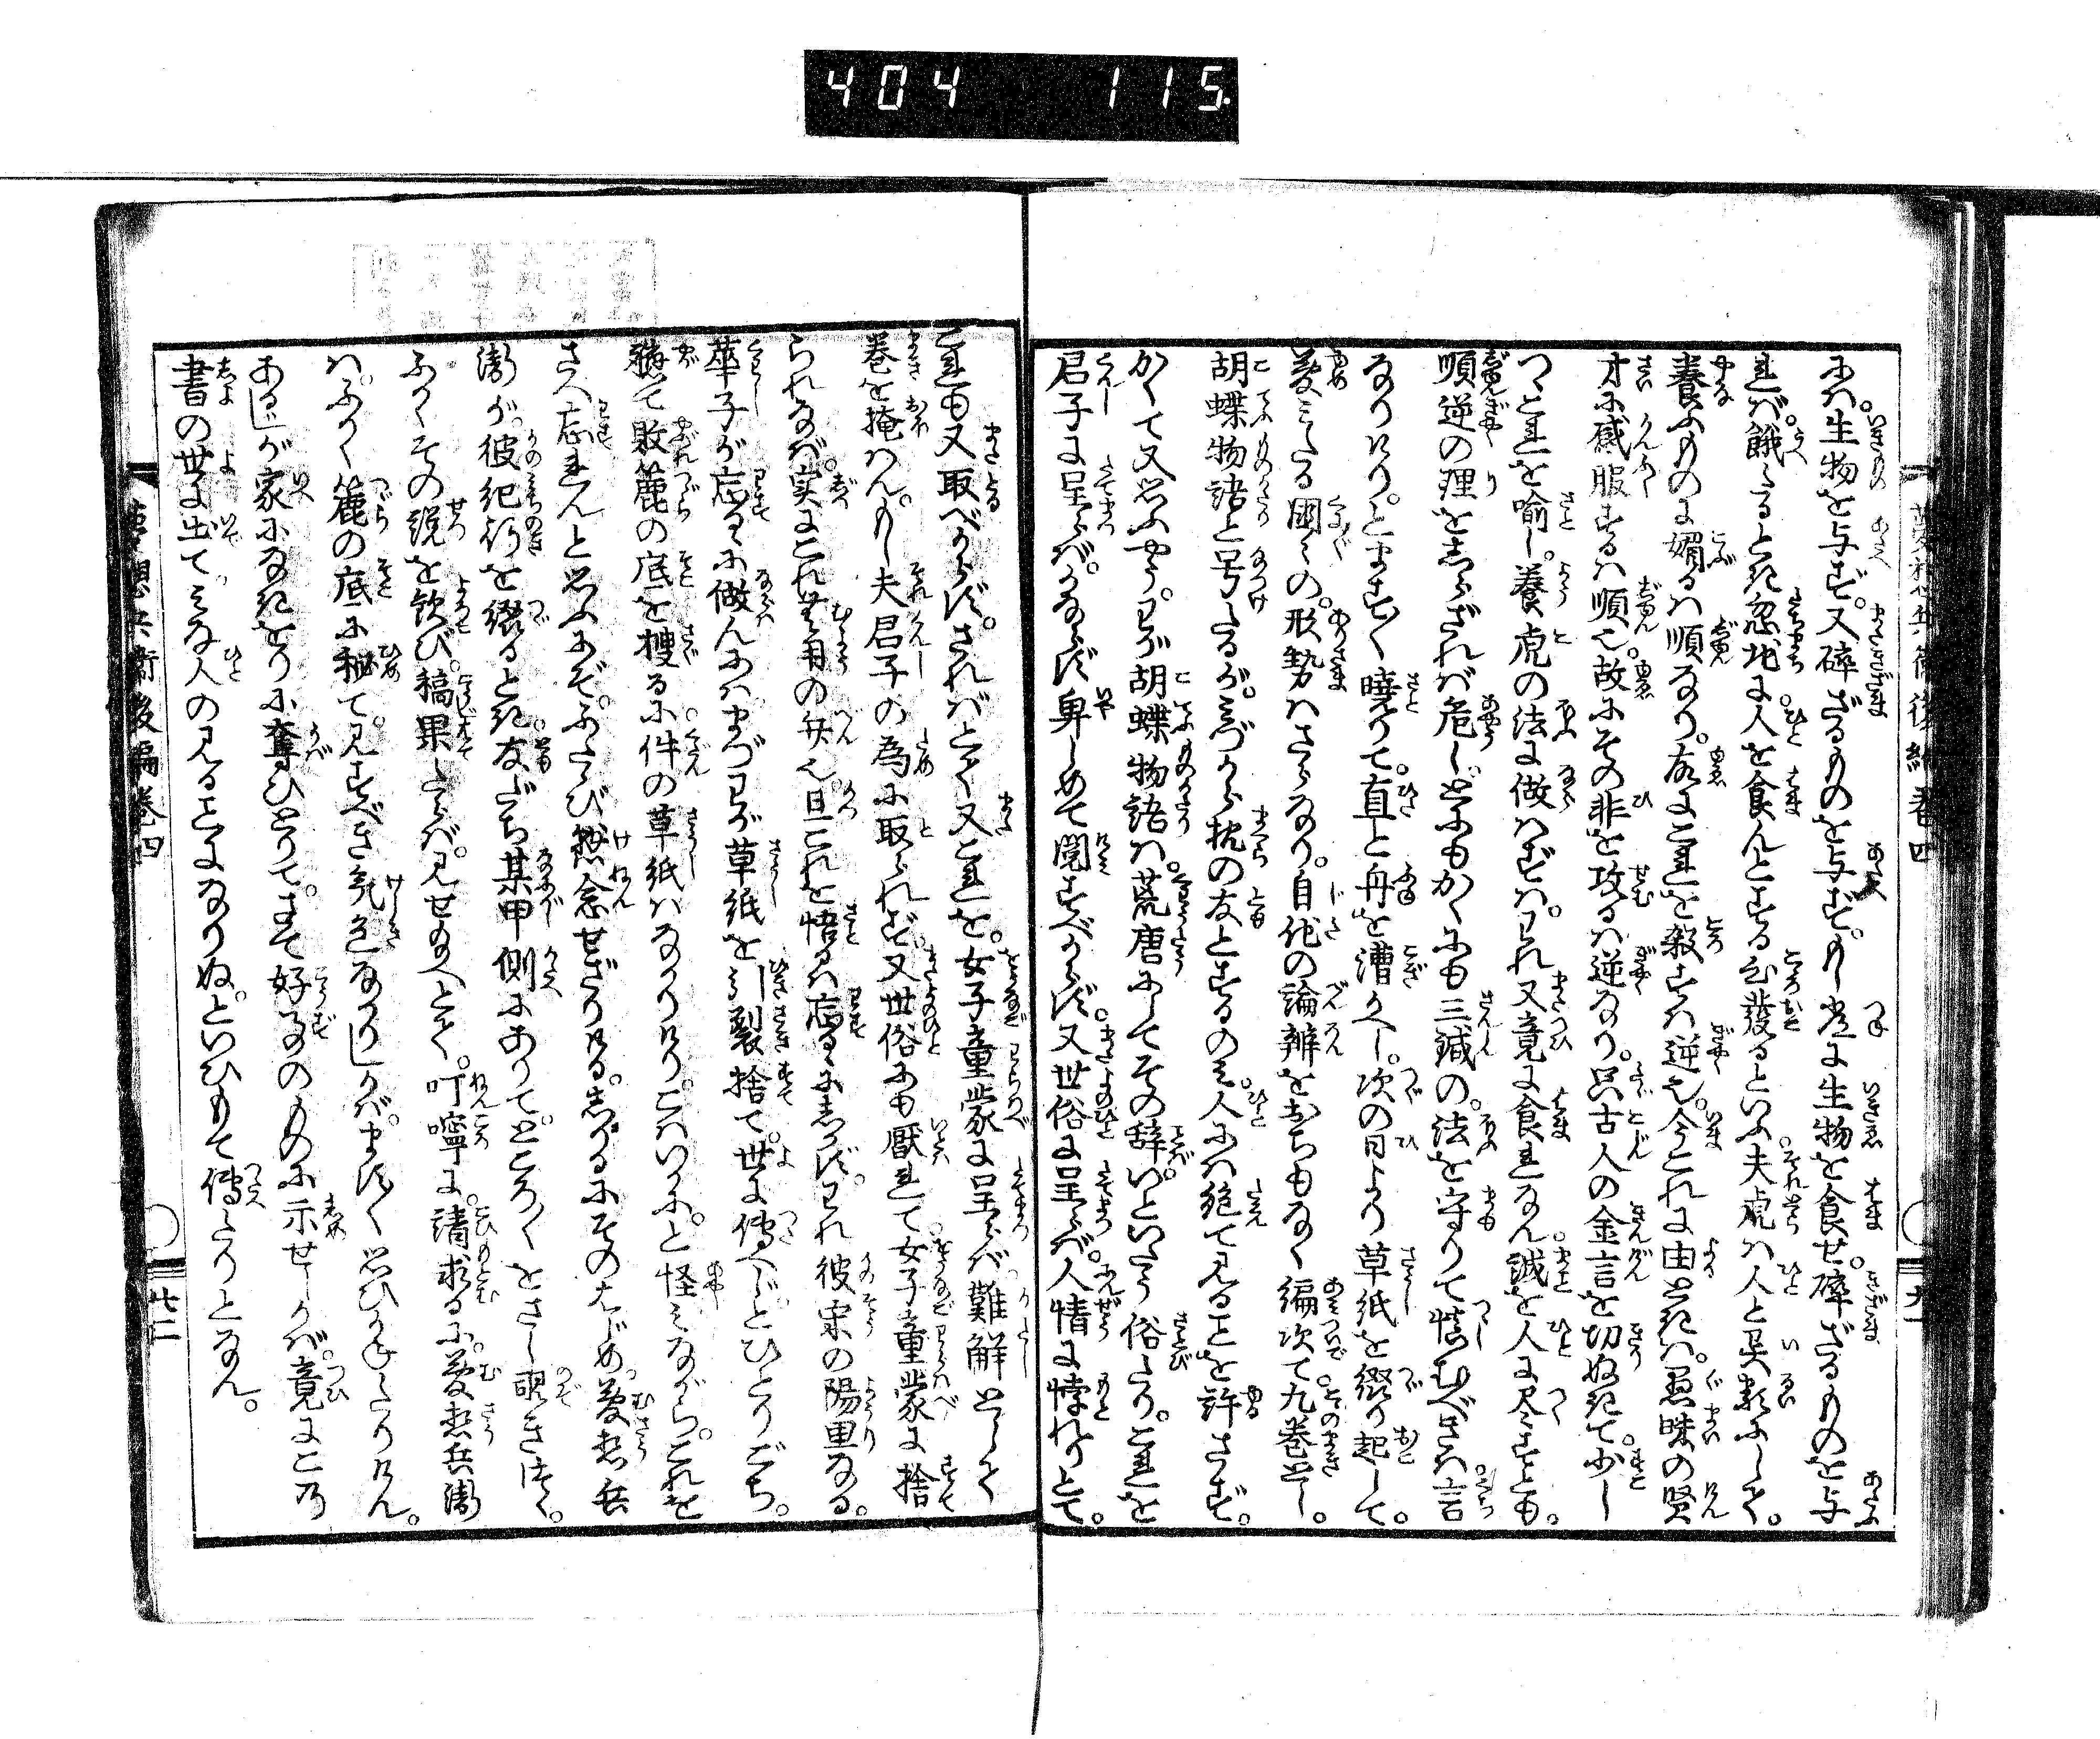 404 115.
夢想兵衛後編巻四
には。生物を与ず。又碎ざるものを与ず。もし常に生物を食せ。碎ざるものを与
れば。餓たるとき忽地に人を食んとする心發るといふ。夫虎は人と異類にして。
養ふものに媚るは順なり。故にこれを殺すは逆也。今これに由ときは。愚昧の賢
才に感服するは順也。故にその非を攻るは逆なり。只古人の金言を切ぬきて。少し
つゝこれを喩し。養虎の法に做はずは。われ又竟に食れなん。誠を人に尽すとも。
順逆の理をしらざれば危し。とにもかくにも三緘の。法を守りて慎むべきは言
なりけり。とやうやく曉りて。直と舟を漕かへし。次の日より草紙を綴り起して。
夢みたる國々の。形勢はさらなり。自他の論辨をおちもなく編次て。九巻とし。
胡蝶物語と号たるが。みづから枕の友とするのみ。人には絶て見ることを許さず。
かくて又思ふやう。わが胡蝶物語は。荒唐にしてその辞。いといたう俗たり。これを
君子に呈らば。かならず卑しめて閲すべからず。又世俗に呈らば。人情に悖れりとて。
これも又取べからず。さればとて又これを。女子童蒙に呈らば。難解として
巻を掩はん。もし夫君子の為に取られず。又世俗にも厭れて。女子童蒙に捨
られなば。実にこれ無用の弁也。且これを悟るは忘るゝにしかず。われ彼宋の陽里なる。
華子が忘るゝに做んには。まづわが草紙を引裂捨て。世に傳へじとひとりごち。
軈て敗簏の底を捜るに。件の草紙はなかりけり。こはいかに。と怪みながら。これを
さへ忘れんと思ふにぞ。ふたゝび懸念せざりける。しかるにそのはじめ。夢想兵
衛が彼紀行を綴るとき。友だち某甲側にありて。ところ／＼をさし覗きつゝ。
ふかくその説を歓び。稿果たらば。見せ給へとて。叮嚀に。請求るに。夢想兵衛
は。ふかく簏の底に秘て。見すべき気色なかりしかば。ます／＼思ひかねたりけん。
あるじが家になきをりに奪ひとりて。まて好事のものに示せしかば。竟にこの
書の世に出て。みな人の見ることになりぬ。といひもて傳へたりとなん。
夢想兵衛後編巻四
廿二